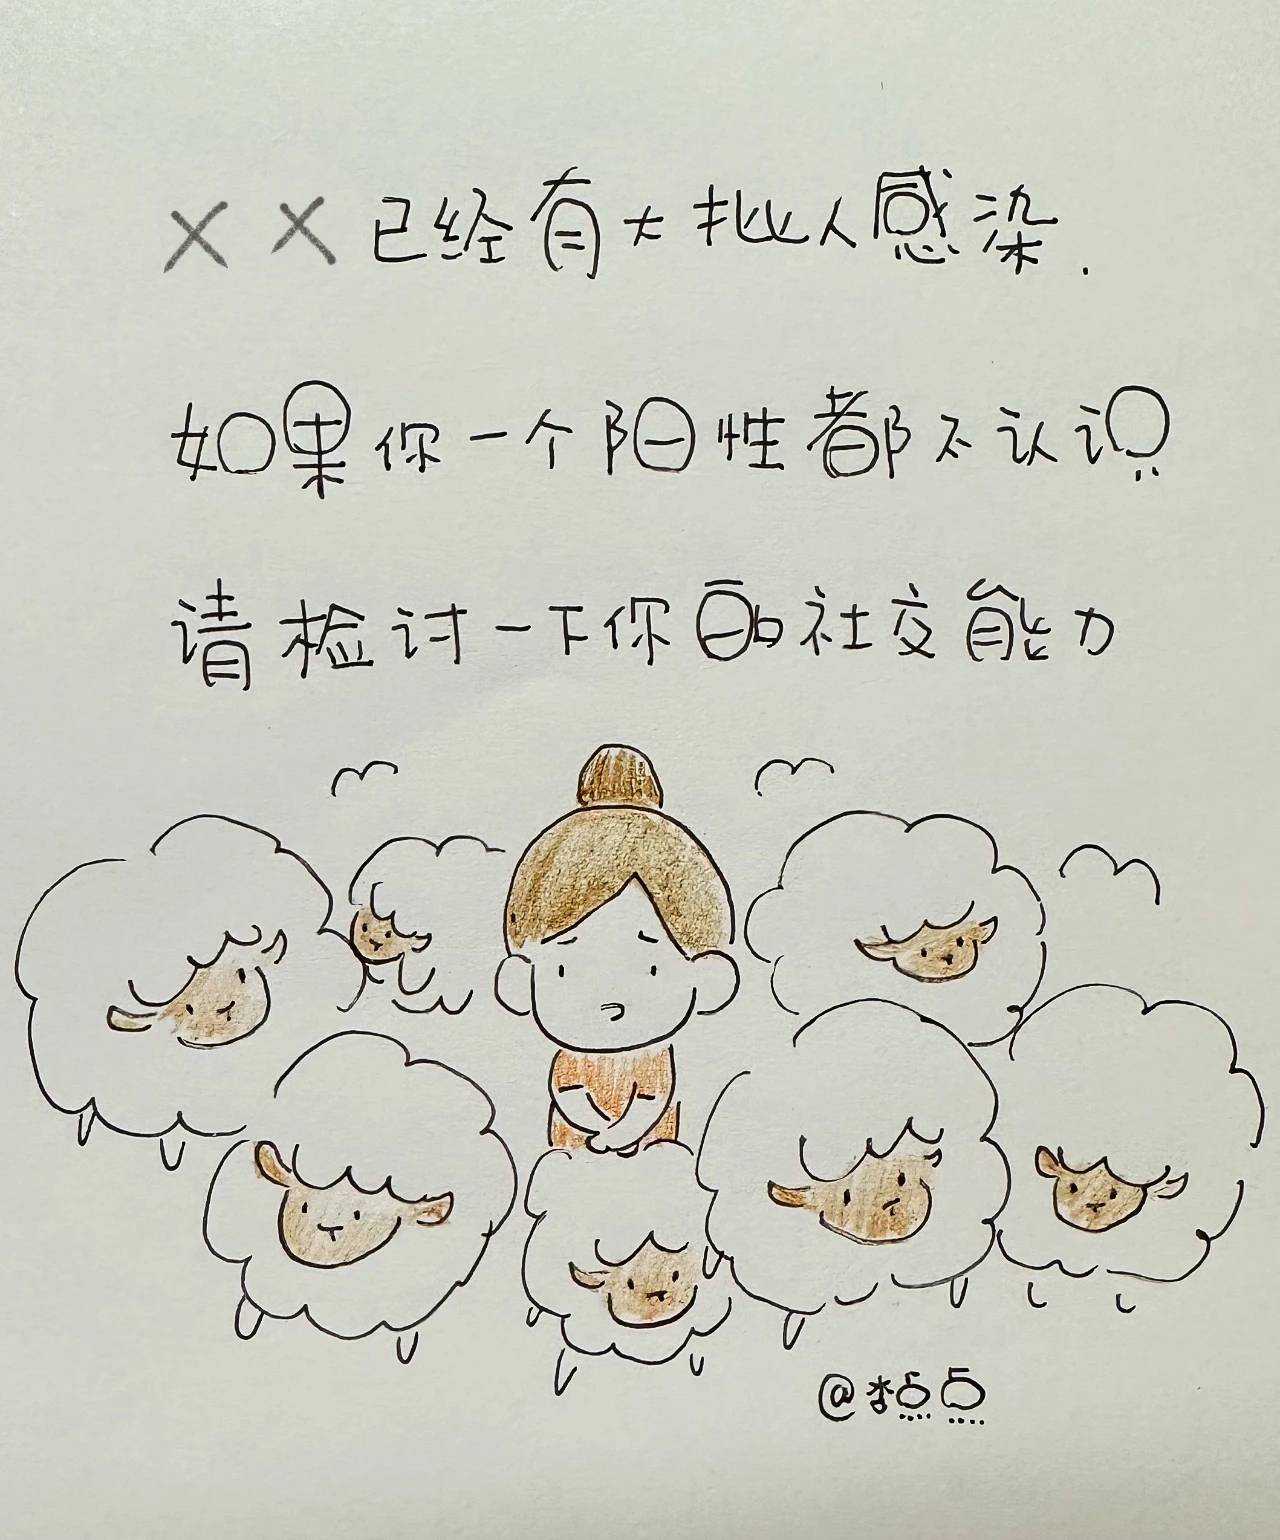 ××已经有大批人感染.
如果你一个阳性都不认识
请检讨一下你的社交能力
@李点点